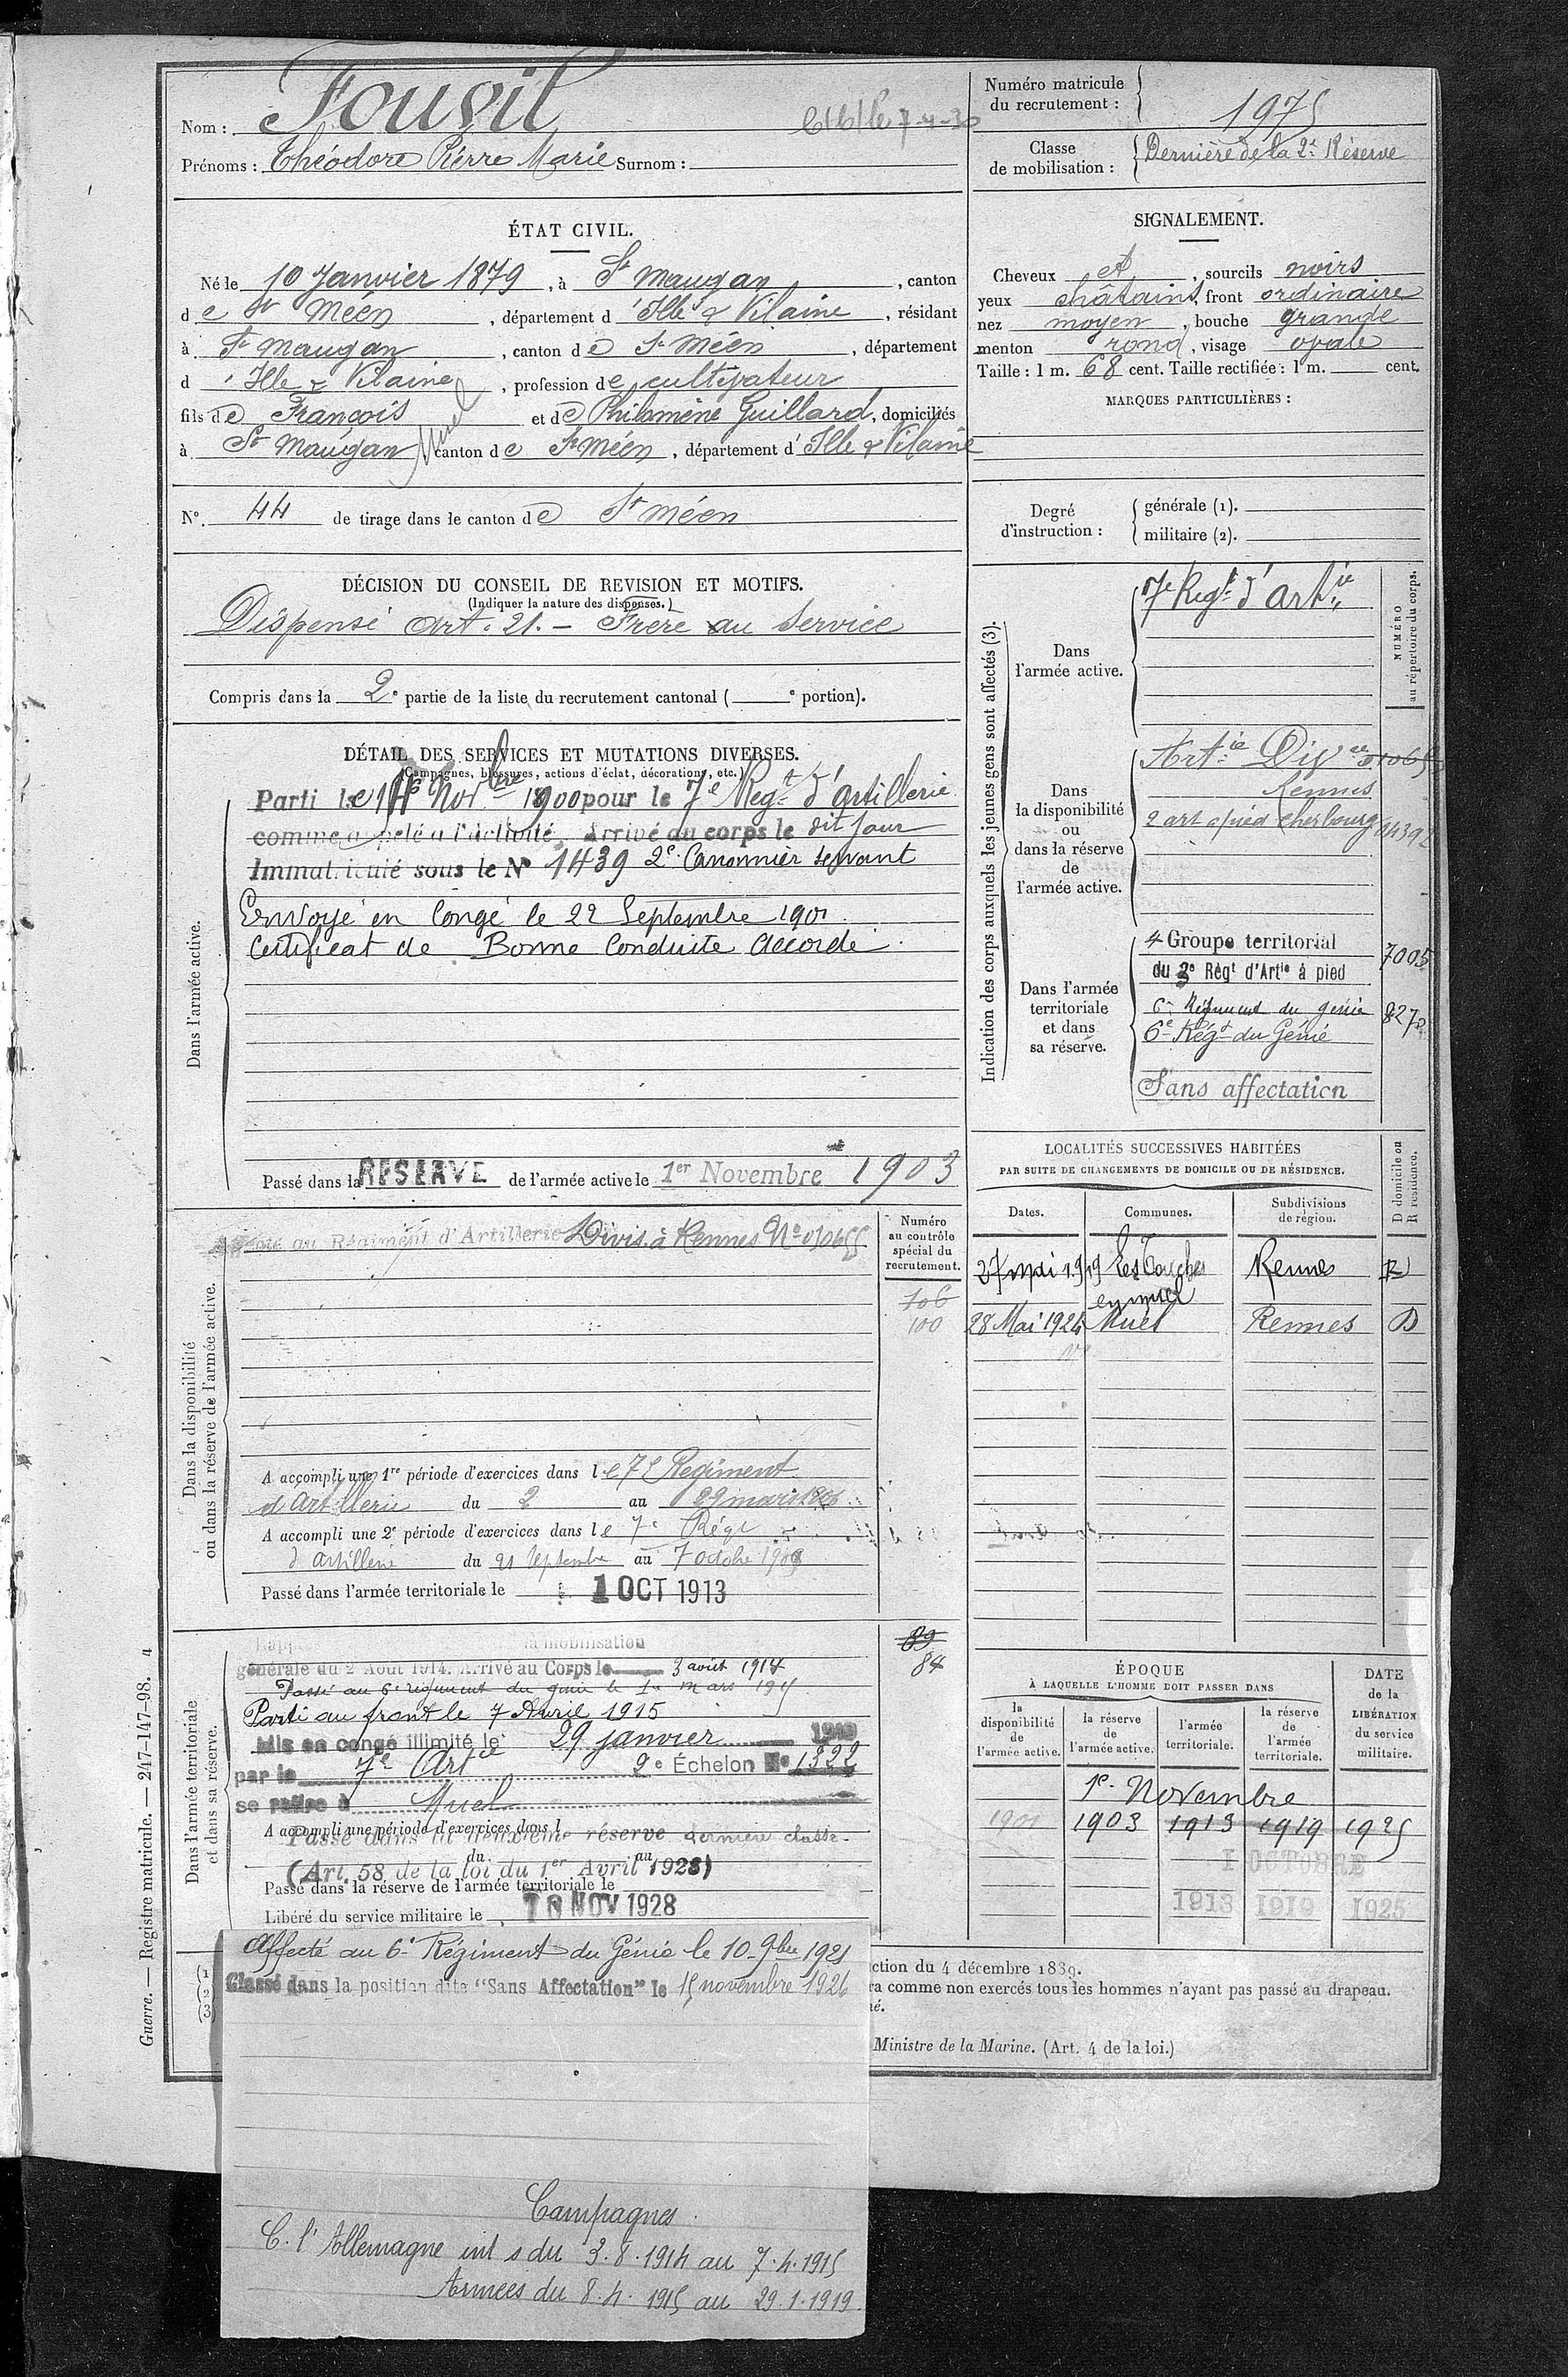 Nom : Fouvil
Prénoms : Théodore Pierre Marie Surnom :
ÉTAT CIVIL.
Né le 10 Janvier 1879, à St Maugan, canton
de St Méen, département d'Ille & Vilaine, résidant
à St Maugan, canton de St Méen, département
d'Ille & Vilaine, profession de cultivateur
fils de François et de Philomène Guillard, domiciliés
à St Maugan Muel canton de St Méen, département d'Ille & Vilaine
N° 44 de tirage dans le canton de St Méen
DÉCISION DU CONSEIL DE REVISION ET MOTIFS.
(Indiquer la nature des dispenses.)
Dispensé Art. 21. - Frère au Service
Compris dans la 2e partie de la liste du recrutement cantonal ( e portion).
DÉTAIL DES SERVICES ET MUTATIONS DIVERSES.
(Campagnes, blessures, actions d'éclat, décorations, etc.)
Dans l'armée active.
Parti le Novbre 1900 pour le 7e Regt d'Artillerie
comme appelé à l'activité, Arrivé au corps le dit jour
Immatriculé sous le N° 1439 2e Canonnier servant
Envoyé en Congé le 22 Septembre 1901.
Certificat de Bonne Conduite Accordé.
Passé dans la RESERVE de l'armée active le 1er Novembre 1903
Dans la disponibilité
ou dans la réserve de l'armée active.
au Régiment d'Artillerie Divis. à Rennes N° 010655
Numéro
au contrôle
spécial du
recrutement.
106
100
A accompli une 1re période d'exercices dans le 7e Regiment
d'Artillerie du 2 au 29 mars 1906
A accompli une 2e période d'exercices dans le 7e Régt
d'artillerie du 21 Septembre au 7 octobre 1908
Passé dans l'armée territoriale le 1 OCT 1913
Dans l'armée territoriale
et dans sa réserve.
la mobilisation
générale du 2 Août 1914. Arrivé au Corps le 3 août 1914
Passé au 6e régiment du génie le 1er mars 1915
Parti au front le 7 Avril 1915
Mis en congé illimité le 29 janvier 1919
par le 7e Art 2e Échelon N° 1322
se retire à Muel
A accompli une période d'exercices dans l
Passé dans la deuxième réserve dernière classe.
du au
(Art. 58 de la loi du 1er Avril 1923)
Passé dans la réserve de l'armée territoriale le
Libéré du service militaire le 10 NOV 1928
89
84
Affecté au 6e Régiment du Génie le 10 9bre 1921
Classé dans la position dite "Sans Affectation" le 15 novembre 1926
Campagnes
C. l'Allemagne int s du 3.8.1914 au 7.4.1915
Armées du 8.4.1915 au 29.1.1919
Numéro matricule
du recrutement : 1975
Classe
de mobilisation : Dernière de la 2e Réserve
SIGNALEMENT.
Cheveux et, sourcils noirs
yeux châtains, front ordinaire
nez moyen, bouche grande
menton rond, visage ovale
Taille : 1 m. 68 cent. Taille rectifiée : 1 m. cent.
MARQUES PARTICULIÈRES :
Degré
d'instruction :
générale (1).
militaire (2).
Indication des corps auxquels les jeunes gens sont affectés (3).
NUMÉRO
au répertoire du corps.
Dans
l'armée active.
7e Regt d'Artie
Dans
la disponibilité
ou
dans la réserve
de
l'armée active.
Artie Divre
Rennes
2 art a pied Cherbourg 04392
Dans l'armée
territoriale
et dans
sa réserve.
4 Groupe territorial 7005
du 3e Régt d'Artie à pied
6e Régiment du génie 8270
6e Régt du Génie
Sans affectation
LOCALITÉS SUCCESSIVES HABITÉES
PAR SUITE DE CHANGEMENTS DE DOMICILE OU DE RÉSIDENCE.
D domicile ou
R résidence.
Dates. Communes. Subdivisions
de région.
27 mai 1919 Les Touches Rennes R
en muel
28 Mai 1924 Muel Rennes D
ÉPOQUE
À LAQUELLE L'HOMME DOIT PASSER DANS
DATE
de la
LIBÉRATION
du service
militaire.
la
disponibilité
de
l'armée active.
la réserve
de
l'armée active.
l'armée
territoriale.
la réserve
de
l'armée
territoriale.
1er Novembre
1901 1903 1913 1919 1925
1 OCTOBRE
1913 1919 1925
ction du 4 décembre 1889.
ra comme non exercés tous les hommes n'ayant pas passé au drapeau.
né.
Ministre de la Marine. (Art. 4 de la loi.)
(1
(2
(3)
Guerre. — Registre matricule. — 247-147-98. 4